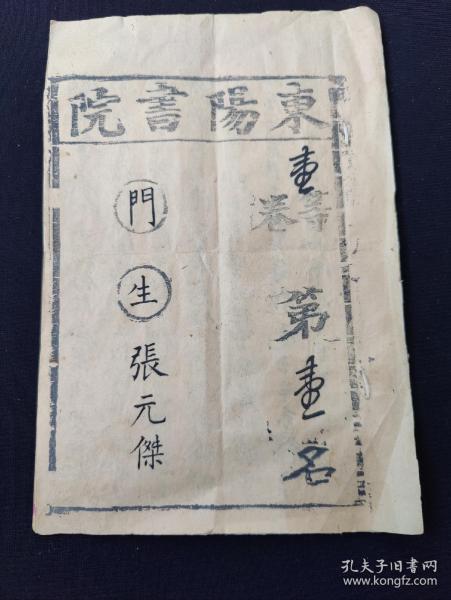 東陽書院
壹等第壹名
卷
門生張元傑
孔夫子旧书网
www.kongfz.com